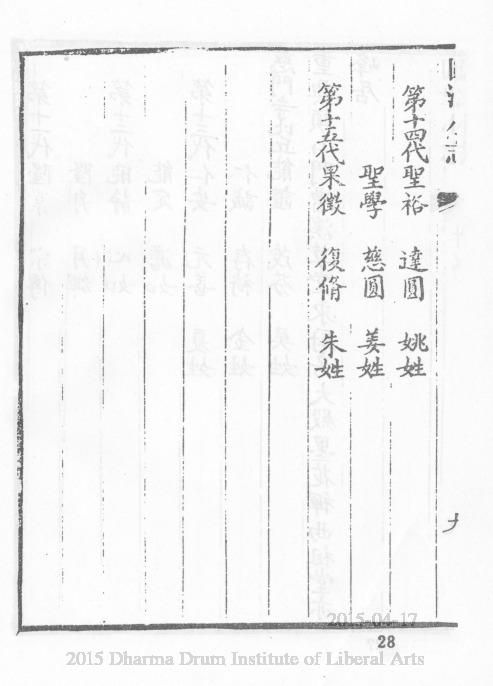 第十四代聖裕 達圓 姚姓
聖學 慈圓 姜姓
第十五代果徵 復脩 朱姓
九
28
2015-04-17
2015 Dharma Drum Institute of Liberal Arts